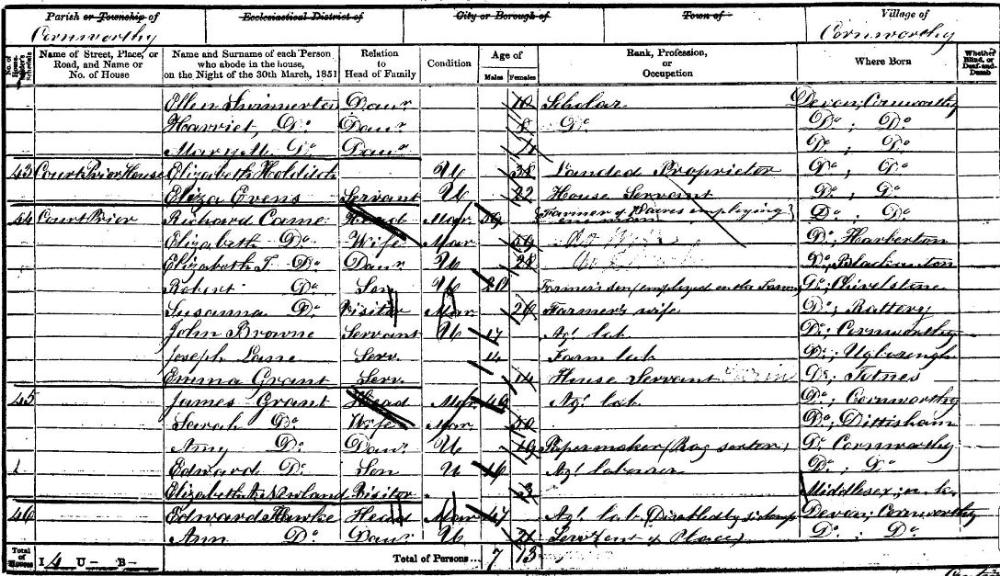 Parish or Township of Ecclesiastical District of City or Borough of Town of Village of
Cornworthy Cornworthy
No. of House-holder's Schedule Name of Street, Place, or Road, and Name or No. of House Name and Surname of each Person who abode in the house, on the Night of the 30th March, 1851 Relation to Head of Family Condition Age of Males Females Rank, Profession, or Occupation Where Born Whether Blind, or Deaf-and-Dumb
Ellen Swimerton Daur 10 Scholar Devon; Cornworthy
Harriet, Do Daur 8 Do Do; Do
Mary M. Do Daur Do; Do
43 Court Prior House Elizabeth Holditch U 38 Landed Proprietor Do; Do
Eliza Evens Servant U 22 House Servant Do; Do
44 Court Prior Richard Corne Head Mar. Farmer of acres employing Do Do
Elizabeth Do Wife Mar. 59 Do; Harberton
Elizabeth T. Do Daur U 28 Do; Blackauton
Robert Do Son U 20 Farmer's son (employed on the Farm) Do; Chivelstone
Susanna Do Visitor Mar. 26 Farmer's wife Do; Rattery
John Browne Servant U 17 Agl lab Do: Cornworthy
Joseph Lane Serv. 14 Farm lab Do; Ugborough
Emma Grant Serv. 14 House Servant Do; Totnes
45 James Grant Head Mar. 49 Agl lab Do; Cornworthy
Sarah Do Wife Mar. 50 Do; Dittisham
Amy Do Daur U 19 Papermaker (Rag sorter) Do Cornworthy
Edward Do Son U 16 Agl labourer Do; Do
Elizabeth Visitor Middlesex; n.k.
46 Edward Hawke Head Mar 47 Agl lab (Disabled by Devon; Cornworthy
Ann Do Daur U Do; Do
Total of Houses I 4 U - B - Total of Persons... 7 13